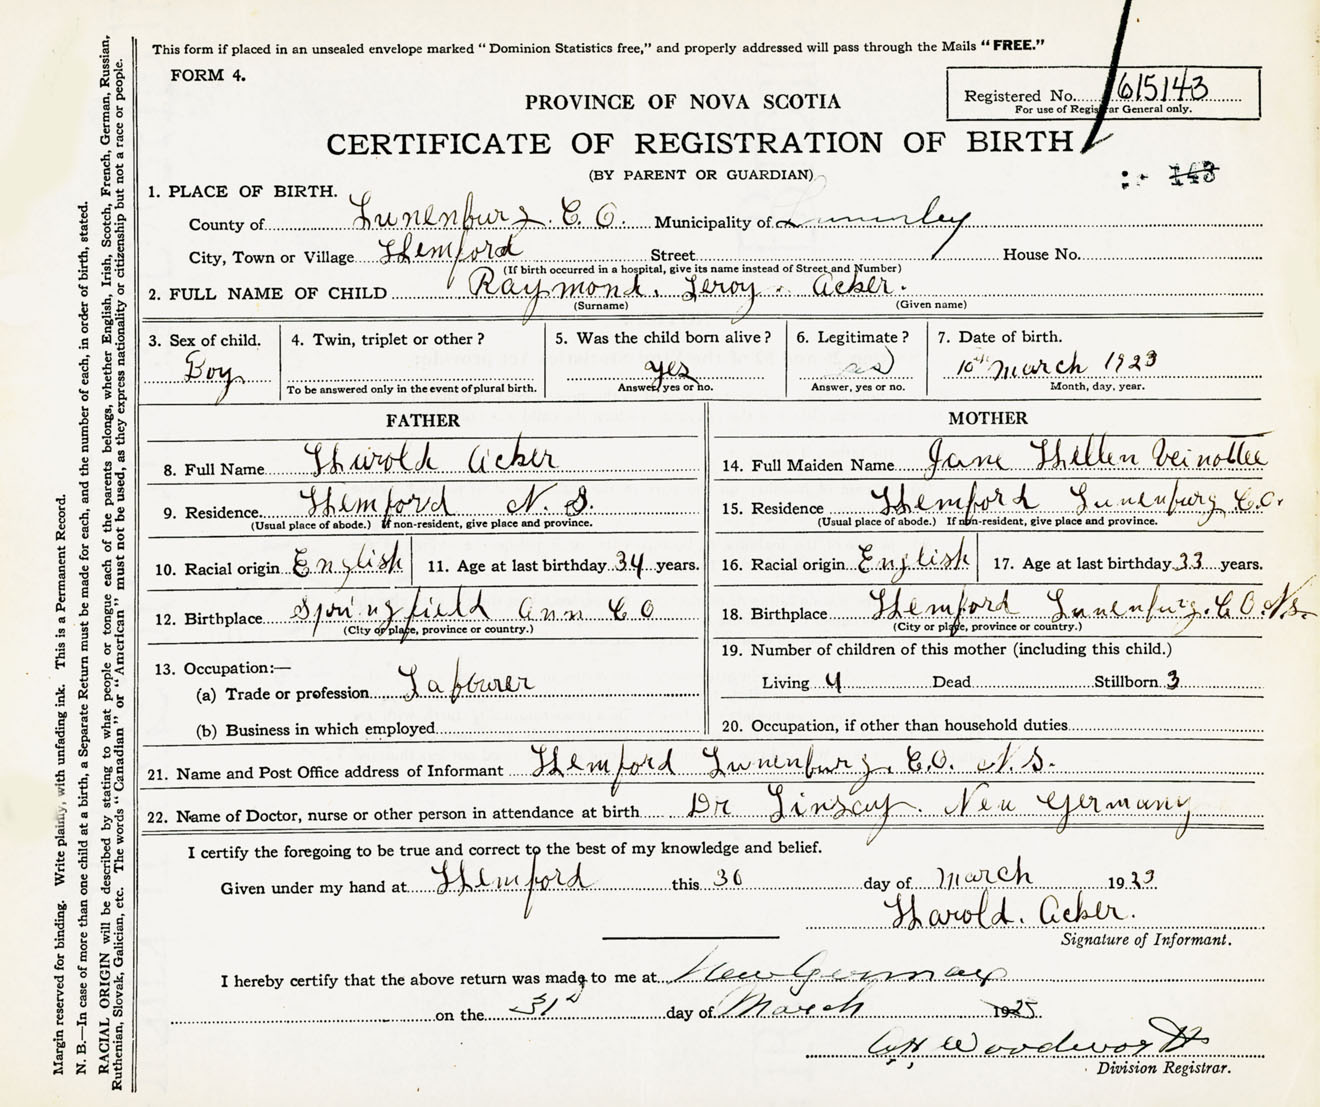 This form if placed in an unsealed envelope marked “Dominion Statistics free,” and properly addressed will pass through the Mails “FREE.”
FORM 4.
Registered No. 615143
For use of Registrar General only.
PROVINCE OF NOVA SCOTIA
CERTIFICATE OF REGISTRATION OF BIRTH
(BY PARENT OR GUARDIAN)
143
1. PLACE OF BIRTH.
County of Lunenburg. C.O. Municipality of
City, Town or Village Hemford Street House No.
(If birth occurred in a hospital, give its name instead of Street and Number)
2. FULL NAME OF CHILD Raymond. Leroy. Acker.
(Surname) (Given name)
3. Sex of child. 4. Twin, triplet or other? 5. Was the child born alive? 6. Legitimate? 7. Date of birth.
Boy yes 10th March 1923
To be answered only in the event of plural birth. Answer, yes or no. Answer, yes or no. Month, day, year.
FATHER
8. Full Name Harold Acker
9. Residence. Hemford N. S.
(Usual place of abode.) If non-resident, give place and province.
10. Racial origin English 11. Age at last birthday 34 years.
12. Birthplace Springfield Ann C O
(City or place, province or country.)
13. Occupation:—
(a) Trade or profession Labourer
(b) Business in which employed
MOTHER
14. Full Maiden Name Jane Hellen Veinottee
15. Residence Hemford Lunenburg C.O.
(Usual place of abode.) If non-resident, give place and province.
16. Racial origin English 17. Age at last birthday 33 years.
18. Birthplace Hemford Lunenburg. C.O. N.S.
(City or place, province or country.)
19. Number of children of this mother (including this child.)
Living 4 Dead Stillborn 3
20. Occupation, if other than household duties
21. Name and Post Office address of Informant Hemford Lunenburg. C.O. N.S.
22. Name of Doctor, nurse or other person in attendance at birth Dr Linscay. New Germany
I certify the foregoing to be true and correct to the best of my knowledge and belief.
Given under my hand at Hemford this 30 day of March 1923
Harold. Acker.
Signature of Informant.
I hereby certify that the above return was made to me at New Germany
on the 31st day of March 1925
Woodworth
Division Registrar.
Margin reserved for binding. Write plainly, with unfading ink. This is a Permanent Record.
N. B.—In case of more than one child at a birth, a Separate Return must be made for each, and the number of each, in order of birth, stated.
RACIAL ORIGIN will be described by stating to what people or tongue each of the parents belongs, whether English, Irish, Scotch, French, German, Russian,
Ruthenian, Slovak, Galician, etc. The words “Canadian” or “American” must not be used, as they express nationality or citizenship but not a race or people.